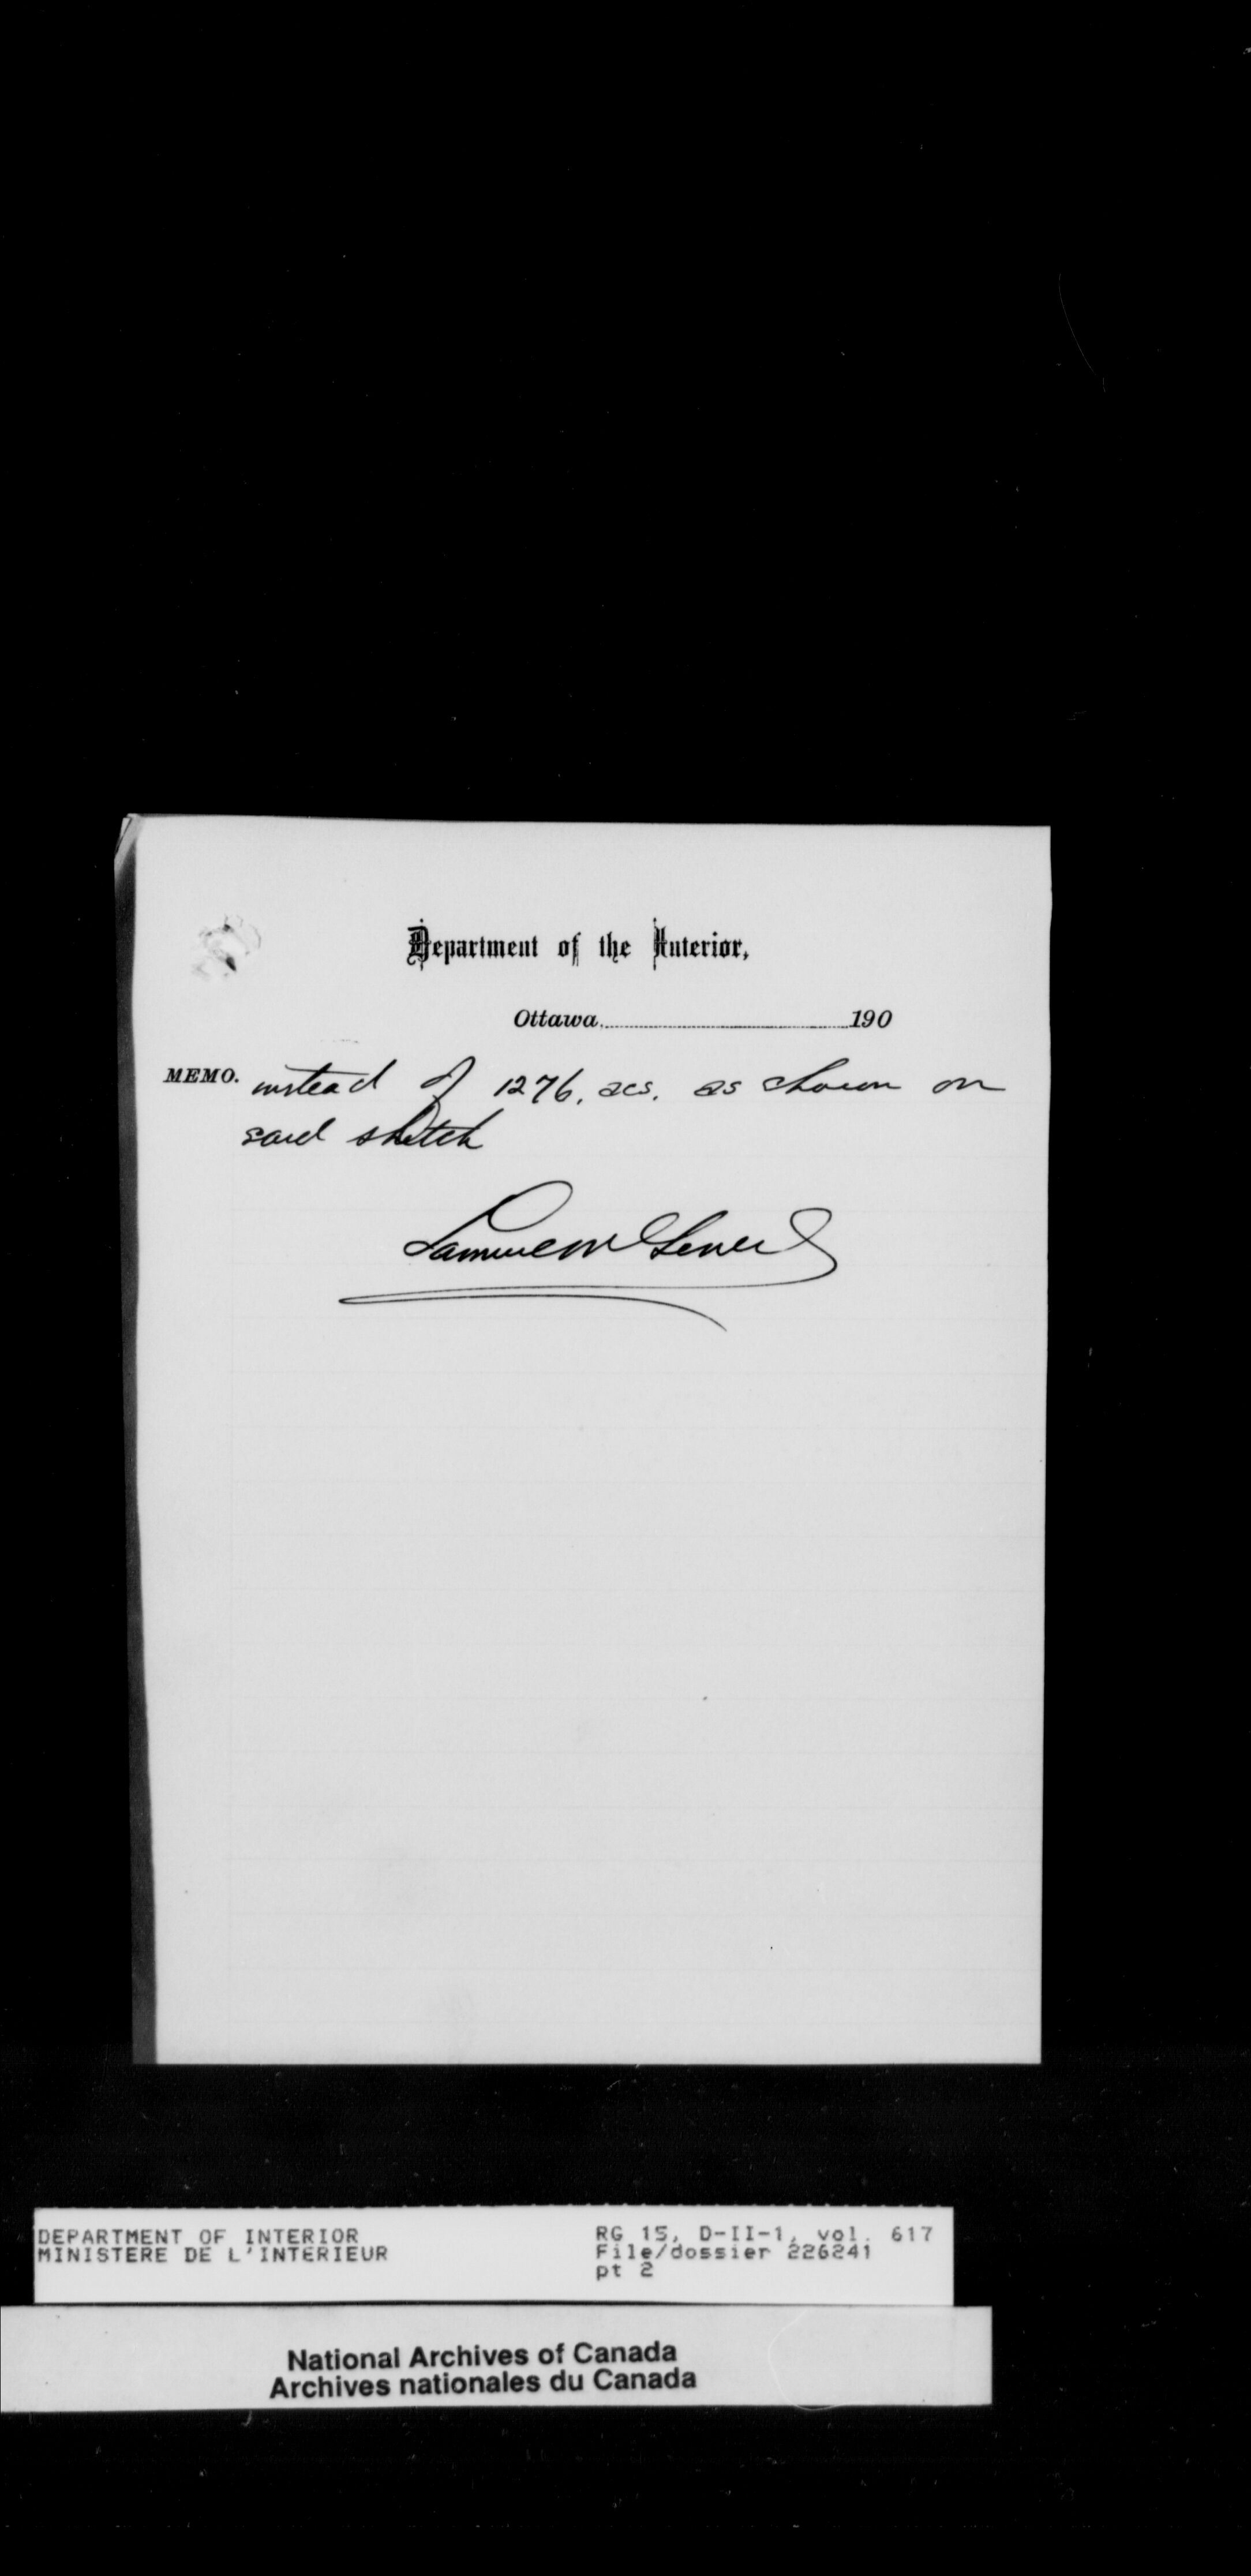 Department of the Interior,
Ottawa 190
MEMO. instead of 1276. acs. as shown on
said sketch
DEPARTMENT OF INTERIOR
MINISTERE DE L'INTERIEUR
RG 15, D-II-1, vol. 617
File/dossier 226241
pt 2
National Archives of Canada
Archives nationales du Canada